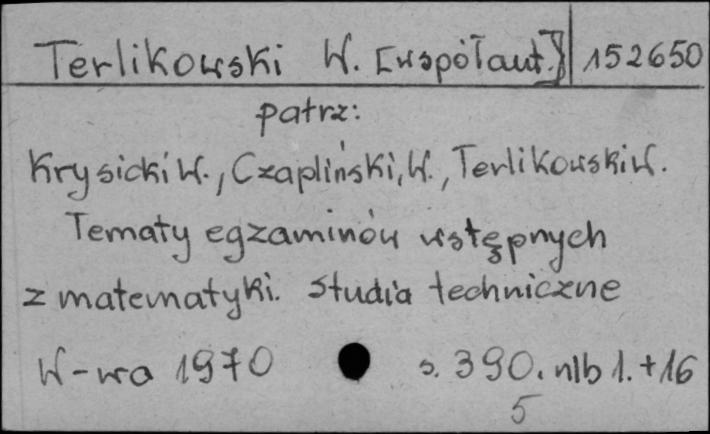 Terlikowski W. [współaut.] 152650
patrz:
Krysicki W., Czapliński, W., Terlikowski W.
Tematy egzaminów wstępnych
z matematyki. Studia techniczne
W-wa 1970 s. 390. nlb 1. + 16
5